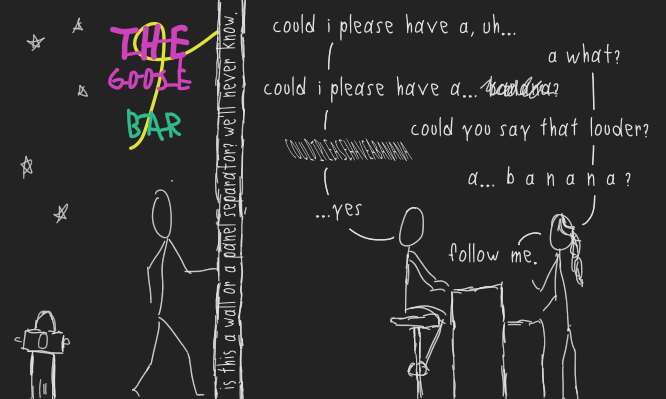 THE
GOOSE
BAR
is this a wall or a panel separator? we'll never know.
could i please have a, uh...
a what?
could i please have a... banana?
could you say that louder?
COULDIPLEASEHAVEABANANA
a... b a n a n a ?
...yes
follow me.